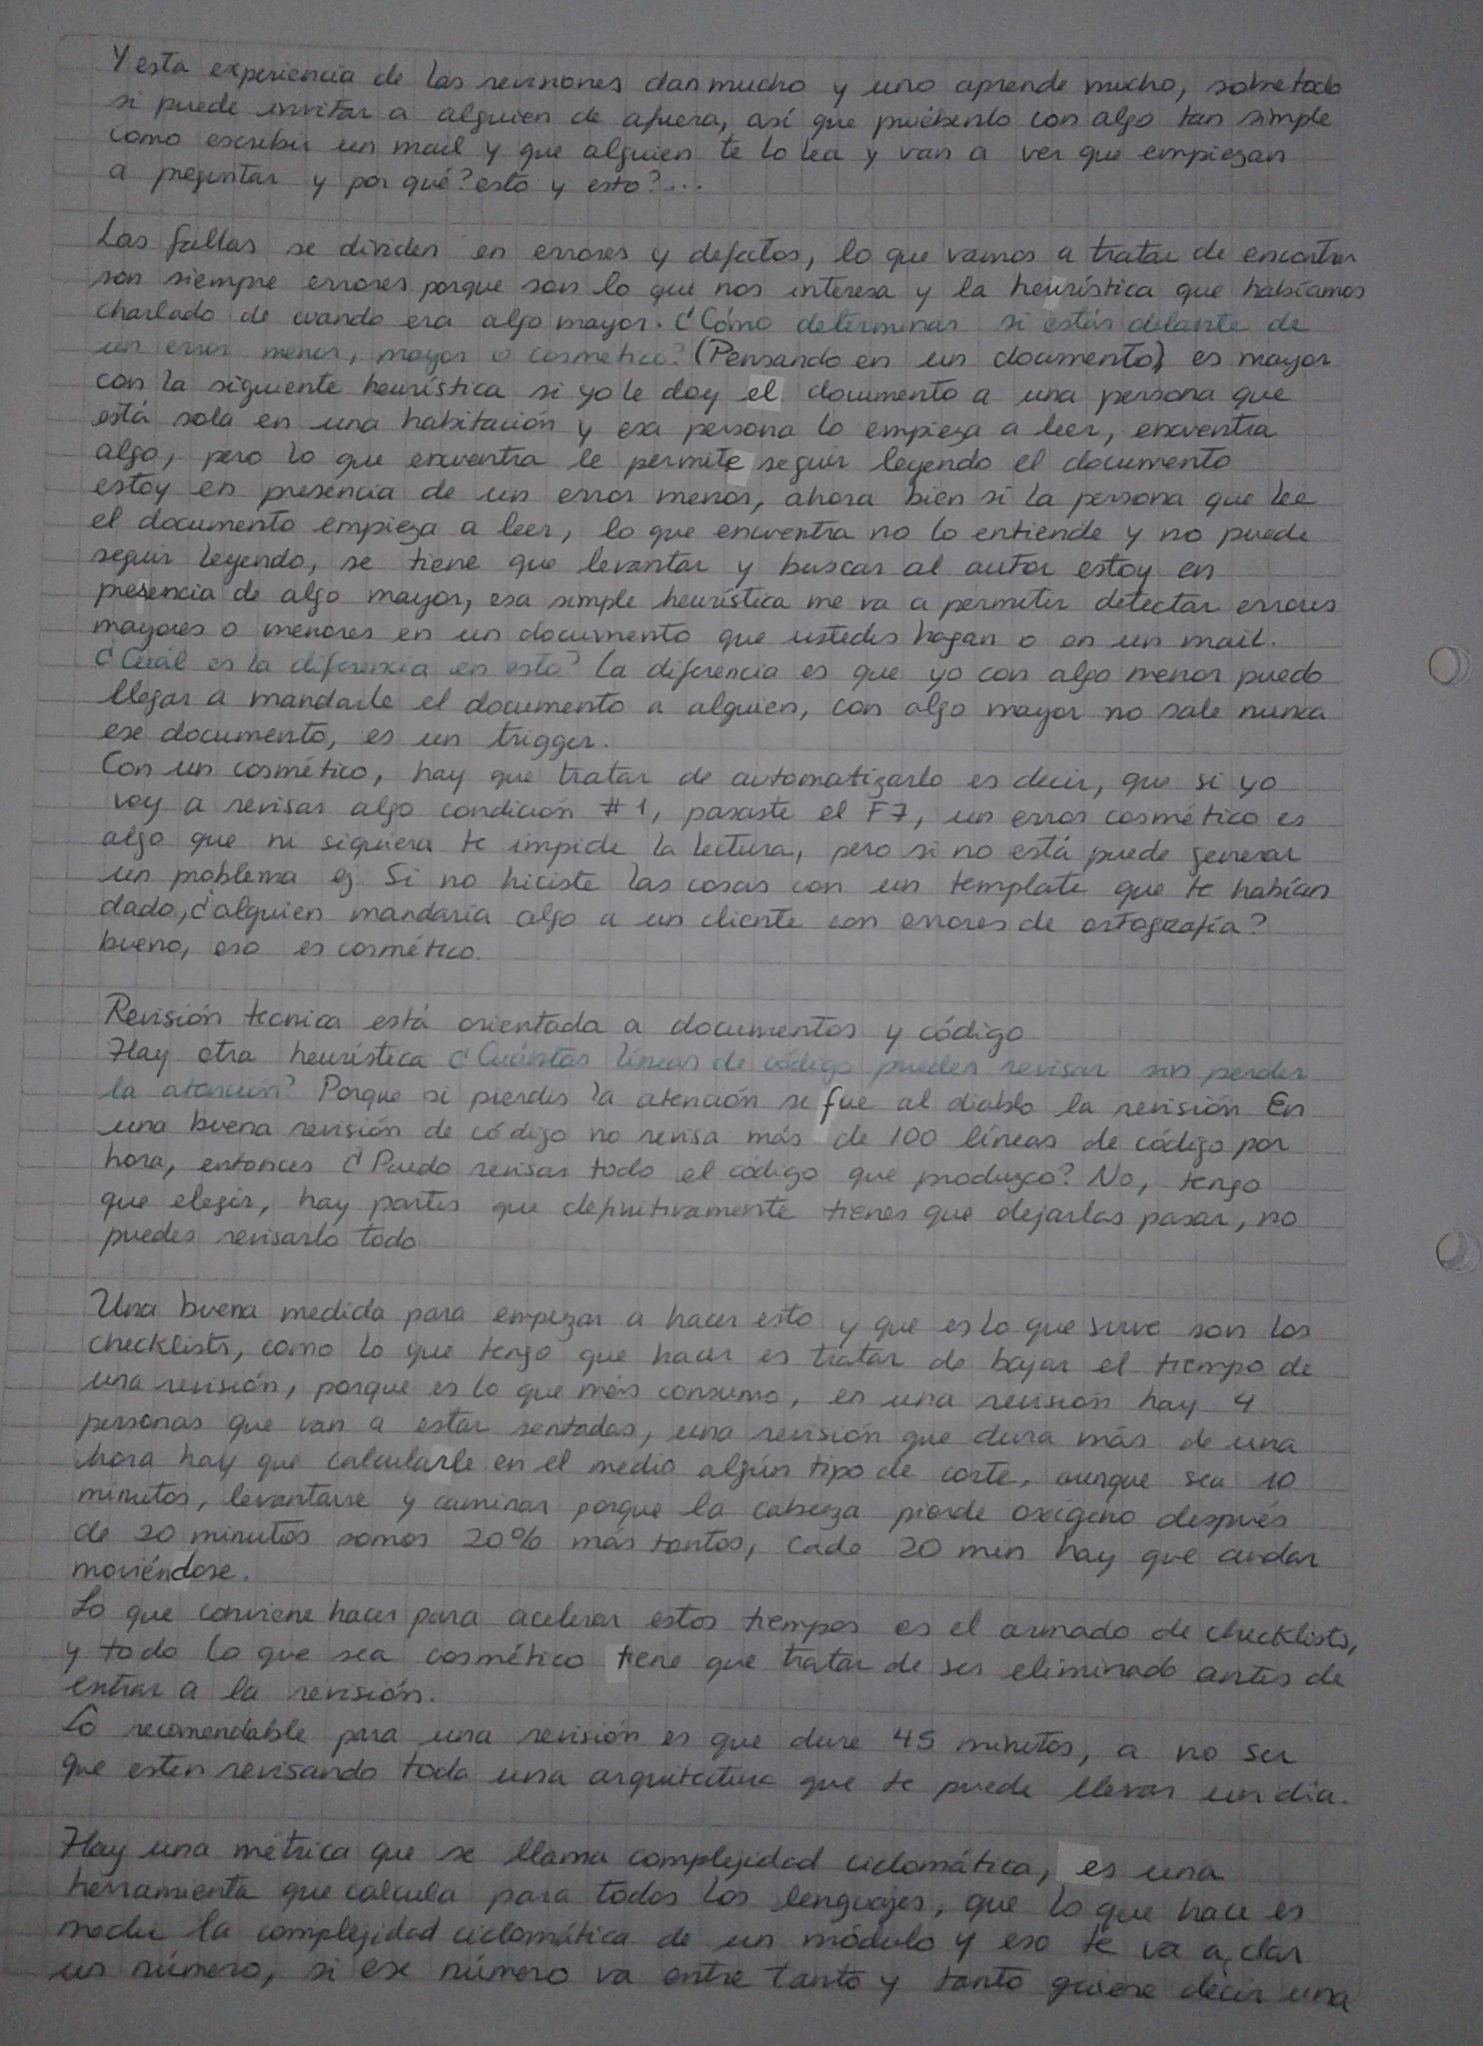 Y esta experiencia de las revisiones dan mucho y uno aprende mucho, sobre todo
si puede invitar a alguien de afuera, así que pruébenlo con algo tan simple
como escribir un mail y que alguien te lo lea y van a ver que empiezan
a preguntar y por qué? esto y esto?...
Las fallas se dividen en errores y defectos, lo que vamos a tratar de encontrar
son siempre errores porque son lo que nos interesa y la heurística que habíamos
charlado de cuando era algo mayor. ¿Cómo determinar si estás delante de
un error menor, mayor o cosmético? (Pensando en un documento) es mayor
con la siguiente heurística si yo le doy el documento a una persona que
está sola en una habitación y esa persona lo empieza a leer, encuentra
algo, pero lo que encuentra le permite seguir leyendo el documento
estoy en presencia de un error menor, ahora bien si la persona que lee
el documento empieza a leer, lo que encuentra no lo entiende y no puede
seguir leyendo, se tiene que levantar y buscar al autor estoy en
presencia de algo mayor, esa simple heurística me va a permitir detectar errores
mayores o menores en un documento que ustedes hagan o en un mail.
¿Cuál es la diferencia en esto? La diferencia es que yo con algo menor puedo
llegar a mandarle el documento a alguien, con algo mayor no sale nunca
ese documento, es un trigger.
Con un cosmético, hay que tratar de automatizarlo es decir, que si yo
voy a revisar algo condición #1, pasaste el F7, un error cosmético es
algo que ni siquiera te impide la lectura, pero si no está puede generar
un problema ej. Si no hiciste las cosas con un template que te habían
dado, ¿alguien mandaría algo a un cliente con errores de ortografía?
bueno, eso es cosmético.
Revisión tecnica está orientada a documentos y código
Hay otra heurística ¿Cuántas líneas de código pueden revisar sin perder
la atención? Porque si pierdes la atención se fue al diablo la revisión En
una buena revisión de código no revisa más de 100 líneas de código por
hora, entonces ¿Puedo revisar todo el código que produzco? No, tengo
que elegir, hay partes que definitivamente tienes que dejarlas pasar, no
puedes revisarlo todo
Una buena medida para empezar a hacer esto y que es lo que sirve son los
checklists, como lo que tengo que hacer es tratar de bajar el tiempo de
una revisión, porque es lo que más consumo, en una revisión hay 4
personas que van a estar sentadas, una revisión que dura más de una
hora hay que calcularle en el medio algún tipo de corte, aunque sea 10
minutos, levantarse y caminar porque la cabeza pierde oxígeno después
de 20 minutos somos 20% más tontos, cada 20 min hay que andar
moviéndose.
Lo que conviene hacer para acelerar estos tiempos es el armado de checklists,
y todo lo que sea cosmético tiene que tratar de ser eliminado antes de
entrar a la revisión.
Lo recomendable para una revisión es que dure 45 minutos, a no ser
que esten revisando toda una arquitectura que te puede llevar un día.
Hay una métrica que se llama complejidad ciclomática, es una
herramienta que calcula para todos los lenguajes, que lo que hace es
medir la complejidad ciclomática de un módulo y eso te va a dar
un número, si ese número va entre tanto y tanto quiere decir una